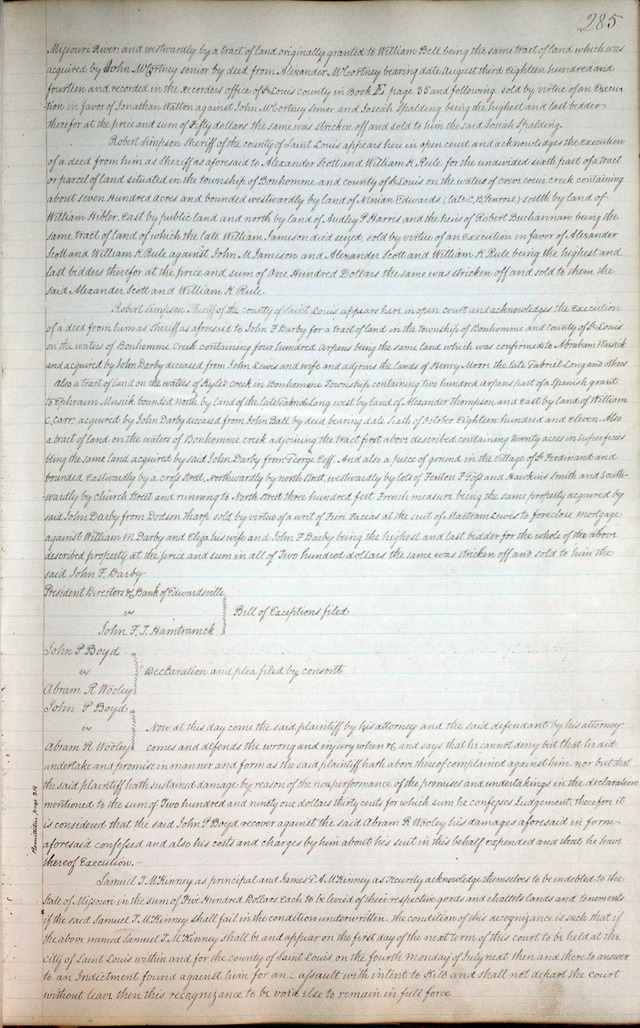 285
Missouri River, and westwardly by a tract of land originally granted to William Bell being the same tract of land which was
acquired by John McCortney senior by deed from Alexander McCortney bearing date August third Eighteen hundred and
fourteen and recorded in the recorders office of St Louis county in Book E page 35 and following sold by virtue of an Execu-
tion in favor of Jonathan Walton against John McCortney Senior and Josiah Spalding being the highest and last bidder
therefor at the price and sum of Fifty dollars the same was stricken off and sold to him the said Josiah Spalding.
Robert Simpson Sheriff of the county of Saint Louis appears here in open court and acknowledges the execution
of a deed from him as Sheriff as aforesaid to Alexander Scott and William K Rule for the undivided sixth part of a tract
or parcel of land situated in the township of Bonhomme and county of St Louis on the waters of creve coeur creek containing
about seven Hundred acres and bounded westwardly by land of Ninian Edwards (late C, B, Penrose) south by land of
William Hibler, East by public land and north by land of Audley P Harris and the heirs of Robert Buchannan being the
same tract of land of which the late William Jamison died seized, sold by virtue of an Execution in favor of Alexander
Scott and William K Rule against John M Jamison and Alexander Scott and William K Rule being the highest and
last bidders therefor at the price and sum of One Hundred Dollars the same was stricken off and sold to them the
said Alexander Scott and William K Rule.
Robert Simpson Sheriff of the county of Saint Louis appears here in open court and acknowledges the Execution
of a deed from him as Sheriff as aforesaid to John F Darby for a tract of land in the township of Bonhomme and county of St Louis
on the waters of Bonhomme Creek containing four hundred Arpens being the same land which was confirmed to Abraham Musick
and acquired by John Darby deceased from John Lewis and wife and adjoins the lands of Henry Moore the late Gabriel Long and others
also a tract of land on the waters of Kyles creek in Bonhomme Township containing two hundred arpens part of a Spanish grant
to Ephraim Musick bounded north by land of the late Gabriel Long, west by land of Alexander Thompson and East by land of William
C, Carr, acquired by John Darby deceased from John Ball by deed bearing date sixth of October Eighteen hundred and eleven. Also
a tract of land on the waters of Bonhomme creek adjoining the tract first above described containing twenty acres in superfices
being the same land acquired by said John Darby from George Coff. And also a piece of ground in the village of St Ferdinand and
bounded eastwardly by a cross street, Northwardly by north street, westwardly by lots of Fenton F Foss and Hawkins Smith and South-
wardly by church street and running to North street three hundred feet French measure being the same property acquired by
said John Darby from Dodson Tharp sold by virtue of a writ of Fieri Facias at the suit of Mastram Lewis to foreclose mortgage
against William M Darby and Eliza his wife and John F Darby being the highest and last bidder for the whole of the above
described property at the price and sum in all of Two hundred dollars the same was stricken off and sold to him the
said John F. Darby
President Directors &c Bank of Edwardsville
vs
Bill of Exceptions filed
John F. T. Hamtramck
John P Boyd
vs
Declaration and plea filed by consent
Abram R Wooley
John P Boyd
vs
Now at this day come the said plaintiff by his attorney and the said defendant by his attorney
Abram R Wooley comes and defends the wrong and injury when &c, and says that he cannot deny but that he did
undertake and promise in manner and form as the said plaintiff hath above thereof complained against him, nor but that
the said plaintiff hath sustained damage by reason of the nonperformance of the promises and undertakings in the declaration
mentioned to the sum of Two hundred and ninety one dollars thirty cents for which sum he confesses Judgement, therefore it
is considered that the said John P Boyd recover against the said Abram R Wooley his damages aforesaid in form
aforesaid confessed and also his costs and charges by him about his suit in this behalf expended and that he have
thereof Execution.
Samuel T. McKinney as principal and James P. A. McKinney as security acknowledge themselves to be indebted to the
State of Missouri in the sum of Five Hundred Dollars each to be levied of their respective goods and chattels lands and tenements
if the said Samuel T. McKinney shall fail in the condition underwritten. the condition of this recognizance is such that if
the above named Samuel T. McKinney shall be and appear on the first day of the next term of this court to be held at the
city of Saint Louis within and for the county of Saint Louis on the fourth Monday of July next then and there to answer
to an Indictment found against him for an assault with intent to Kill and shall not depart the court
without leave then this recognizance to be void else to remain in full force